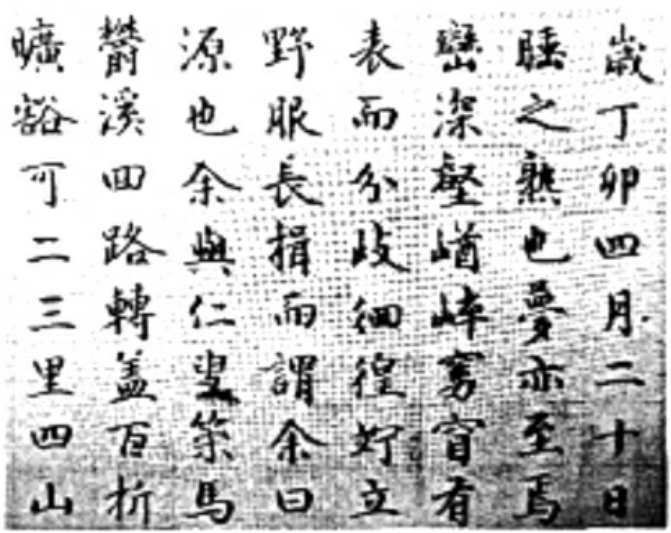 歲丁卯四月二十日
睡之熟也夢亦至焉
巒深壑崷崪窈窅有
表而分歧徊徨竚立
野服長揖而謂余曰
源也余與仁叟策馬
鬱溪回路轉盖百折
曠豁可二三里四山